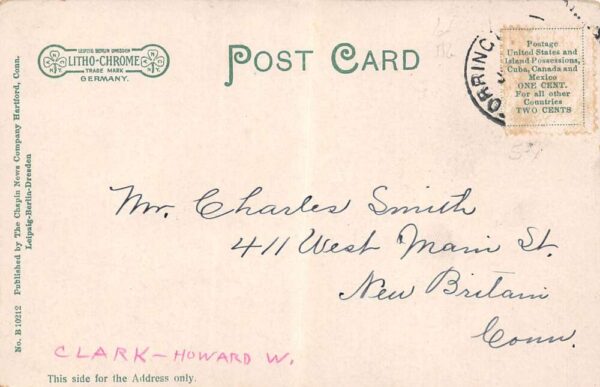 LEIPZIG BERLIN DRESDEN
LITHO-CHROME
TRADE MARK
GERMANY.
POST CARD
Postage
United States and
Island Possessions,
Cuba, Canada and
Mexico
ONE CENT.
For all other
Countries
TWO CENTS
No. B 10212 Published by The Chapin News Company Hartford, Conn.
Leipzig-Berlin-Dresden
Mr. Charles Smith
411 West Main St.
New Britain
Conn.
CLARK-HOWARD W.
This side for the Address only.